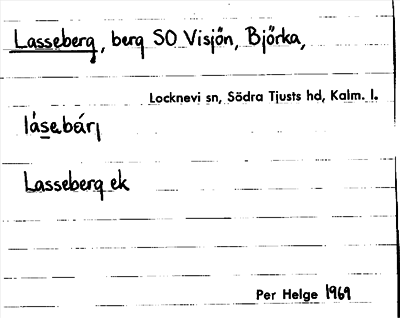 Lasseberg, berg SO Visjön, Björka,
Locknevi sn, Södra Tjusts hd, Kalm. l.
lásebárj
Lasseberg ek
Per Helge 1969